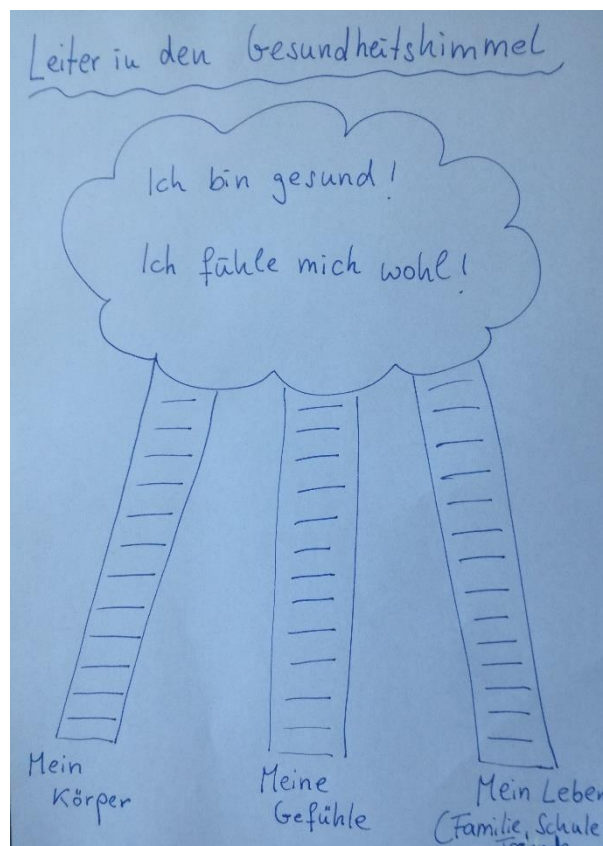 Leiter in den Gesundheitshimmel
Ich bin gesund!
Ich fühle mich wohl!
Mein
Körper
Meine
Gefühle
Mein Leben
(Familie, Schule